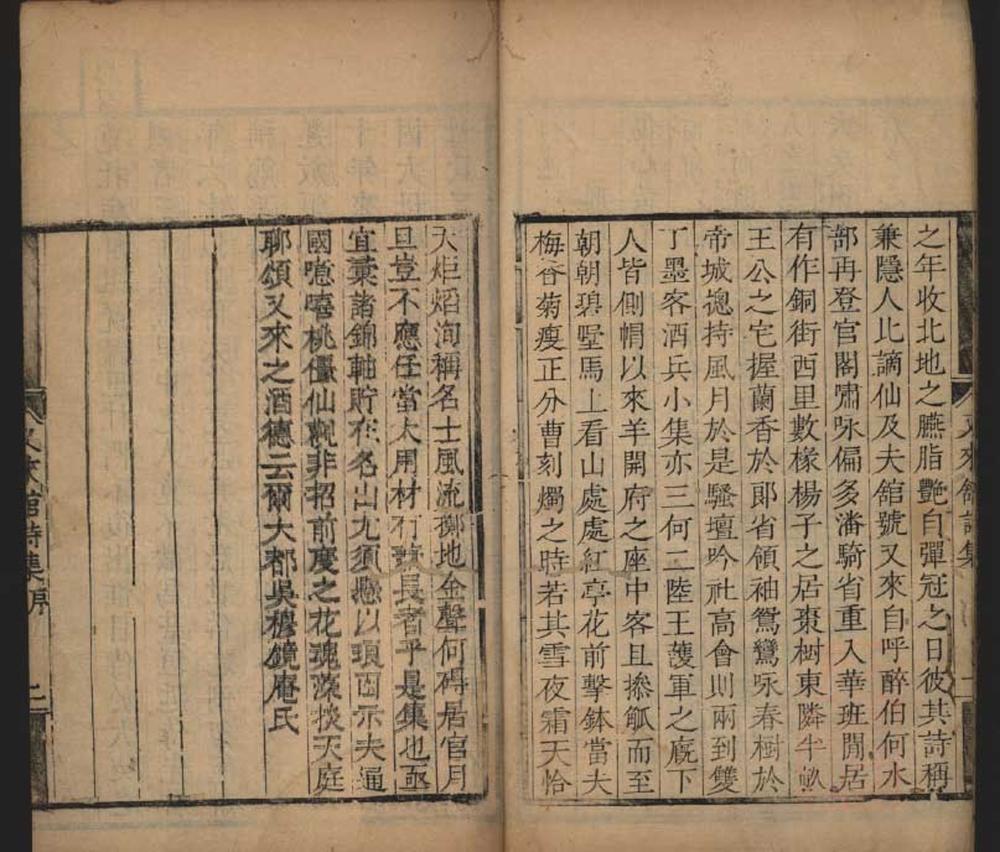 之年收北地之臙脂艷自彈冠之日彼其詩稱
兼隱人比謫仙及夫舘號又來自呼醉伯何水
部再登官閣嘯咏偏多潘騎省重入華班閒居
有作銅街西里數椽楊子之居棗樹東隣半畝
王公之宅握蘭香於郎省領袖鴛鸞咏春樹於
帝城總持風月於是騷壇吟社高會則兩到雙
丁墨客酒兵小集亦三何二陸王護軍之廐下
人皆側帽以來羊開府之座中客且摻觚而至
朝朝碧墅馬上看山處處紅亭花前擊鉢當夫
梅香菊瘦正分曹刻燭之時若其雪夜霜天恰
又來舘詩集
大炬焰洵稱名士風流擲地金聲何碍居官月
旦豈不應任當大用材有兼長者乎是集也亟
宜藁諸錦軸貯在名山尤須懸以頭面示夫通
國噫嘻桃僵仙觀非招前度之花魂藻掞天庭
聊頌又來之酒德云爾大都吳穆鏡庵氏
又來舘詩集序
二